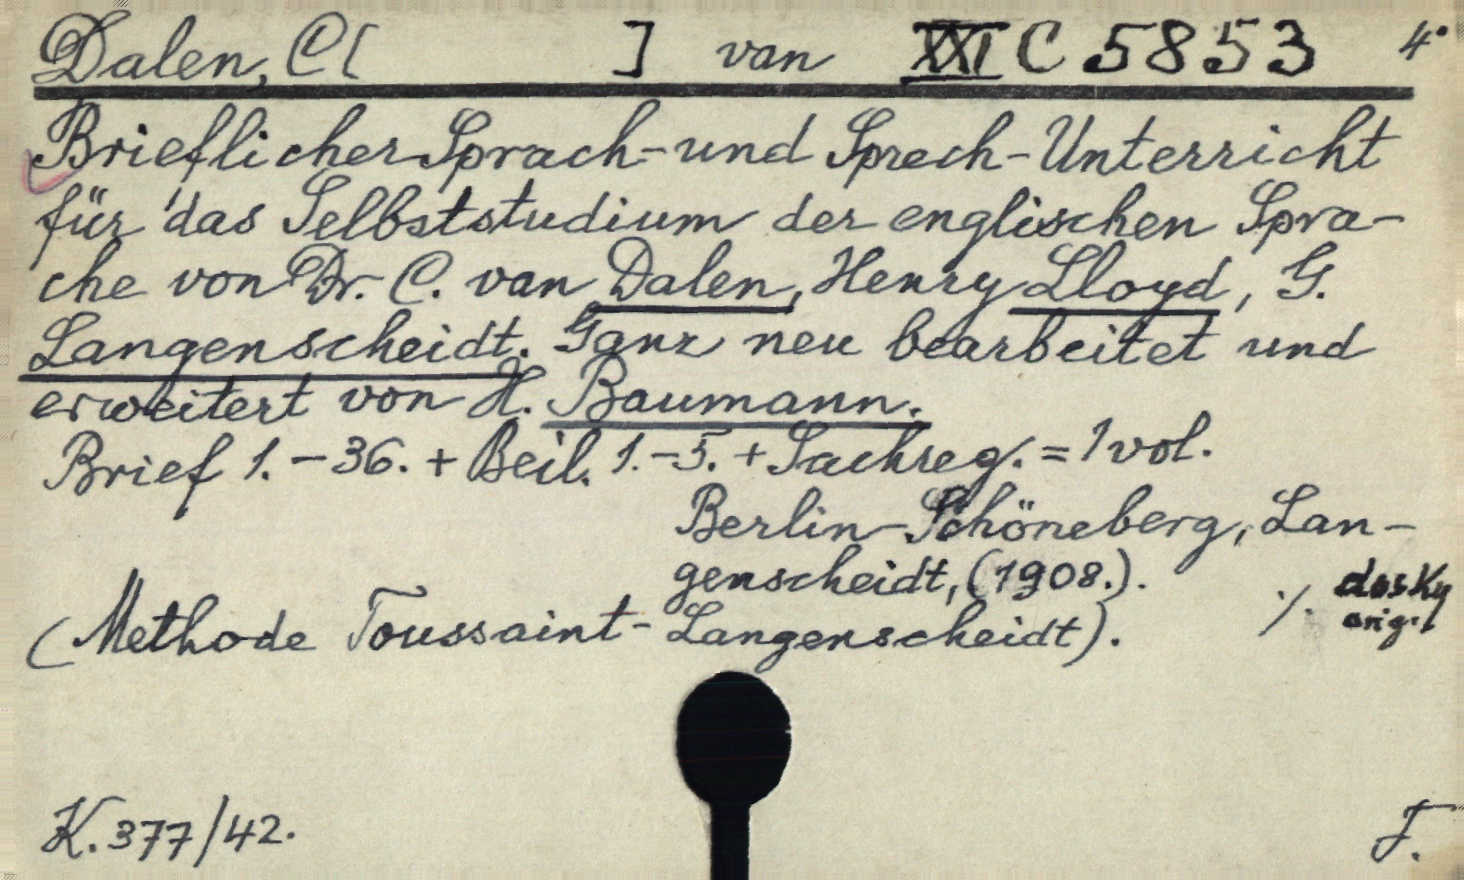 Dalen, C[ ] van XXI C 5853 4°
Brieflicher Sprach- und Sprech-Unterricht
für das Selbststudium der englischen Spra-
che von Dr. C. van Dalen, Henry Lloyd, G.
Langenscheidt. Ganz neu bearbeitet und
erweitert von H. Baumann.
Brief 1.-36. + Beil. 1.-5. + Sachreg. = 1 vol.
Berlin-Schöneberg, Lan-
genscheidt, (1908.).
(Methode Toussaint-Langenscheidt).
K. 377/42.